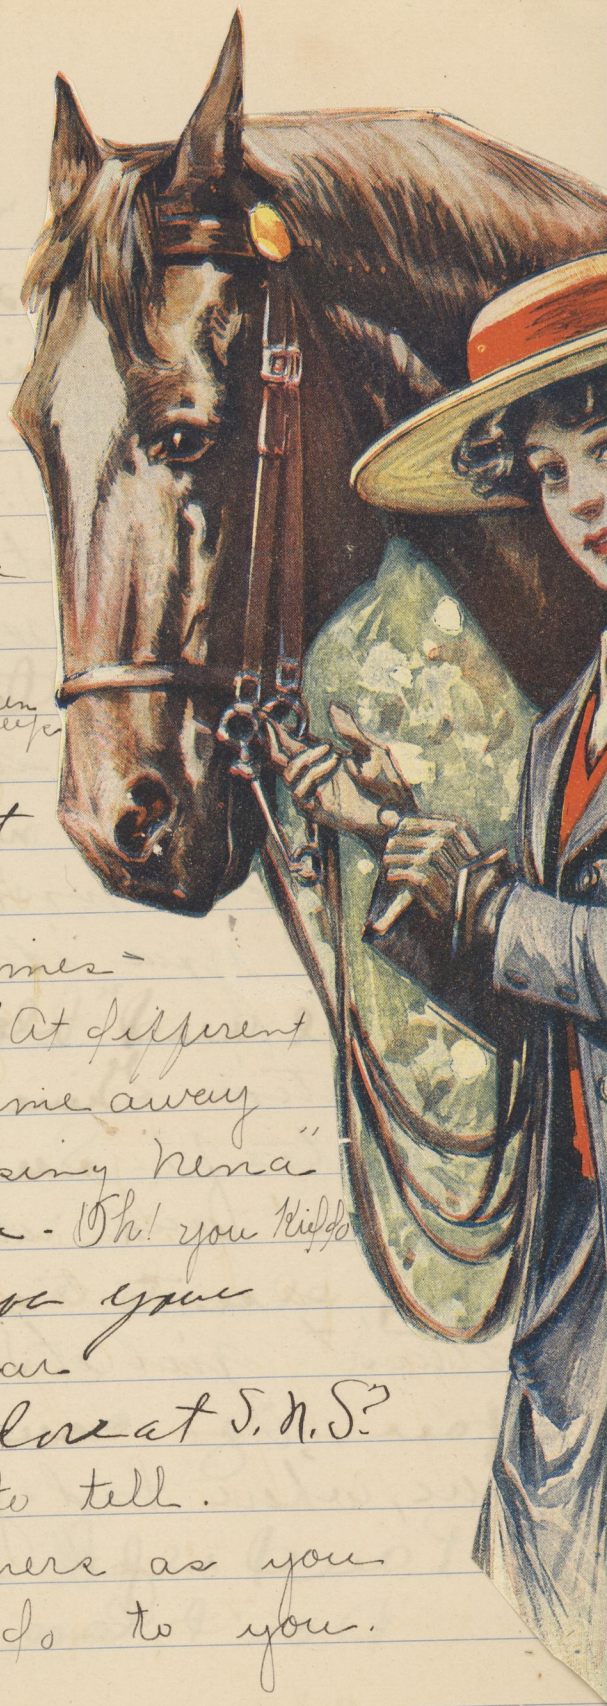 t
mes-
At different
me away
sing Nena"
- Oh! you Kiddo
you
ar
love at S. N. S?
to tell.
hers as you
do to you.